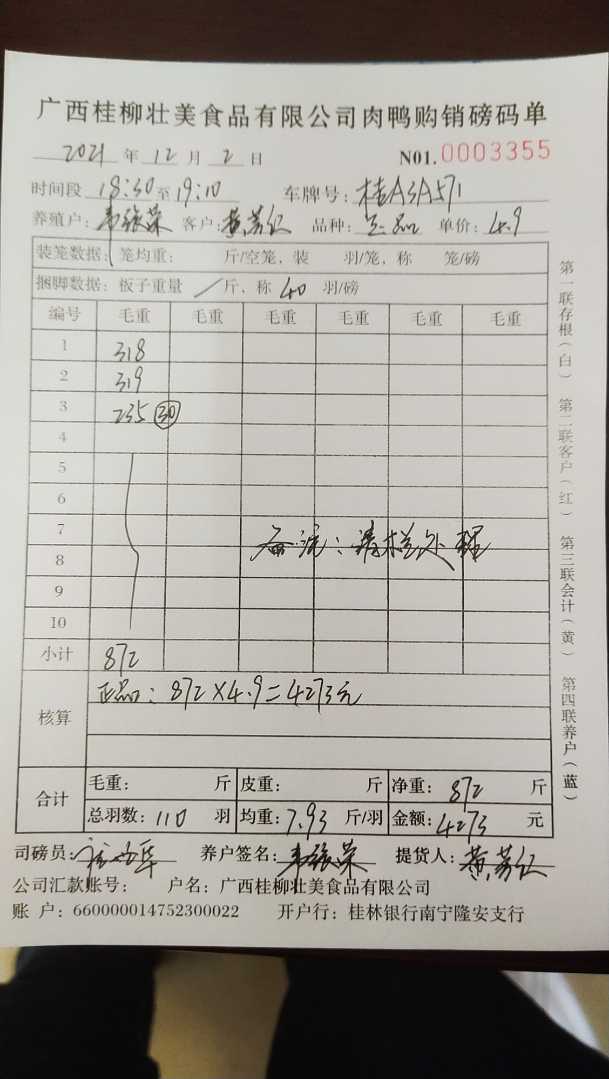 广西桂柳壮美食品有限公司肉鸭购销磅码单
2021 年 12 月 2 日 N01.0003355
时间段 18:30 至 19:10 车牌号: 桂A3A571
养殖户: 韦振荣 客户: 黄 红 品种: 正品 单价: 4.9
装笼数据: 笼均重: 斤/空笼、装 羽/笼, 称 笼/磅
捆脚数据: 板子重量 / 斤、称 40 羽/磅
编号 毛重 毛重 毛重 毛重 毛重 毛重
1 318
2 319
3 235 30
4
5
6
7 备注: 清栏处理
8
9
10
小计 872
核算 正品: 872×4.9=4273元
合计 毛重: 斤 皮重: 斤 净重: 872 斤
总羽数: 110 羽 均重: 7.93 斤/羽 金额: 4273 元
司磅员: 养户签名: 韦振荣 提货人: 黄 红
公司汇款账号: 户名: 广西桂柳壮美食品有限公司
账 户: 660000014752300022 开户行: 桂林银行南宁隆安支行
第一联存根(白) 第二联客户(红) 第三联会计(黄) 第四联养户(蓝)